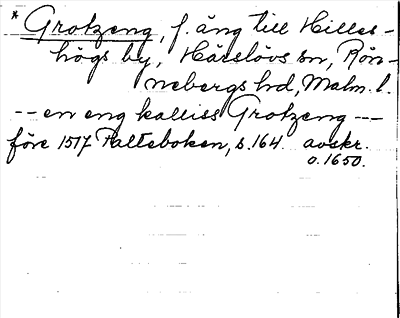 * Grotzeng, f. äng till Hilles-
högs by, Härslövs sn, Rön-
nebergs hd, Malm. l.
-- en eng kalliss Grotzeng --
före 1517 Palteboken, s. 164. avskr.
o. 1650.